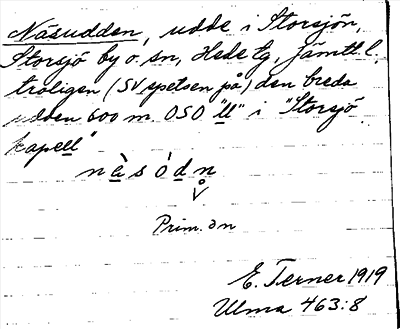 Näsudden, udde i Storsjön,
Storsjö by o. sn, Hede tg, Jämtl. l.
troligen (SV spetsen på) den breda
udden 600 m OSO "ll" i "Storsjö
kapell"
nàsódn
Prim. ən
E. Terner 1919
Ulma 463:8